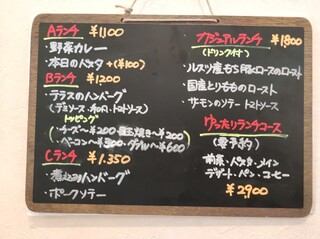 Aランチ ¥1,100
・野菜カレー
・本日のパスタ +(¥100)
Bランチ ¥1200
・テラスのハンバーグ
(デミソース・和風・トマトソース)
トッピング
・チーズ〜¥200・目玉焼き〜¥200
・ベーコン〜¥300・ダブル〜¥600
Cランチ ¥1,350
・煮込みハンバーグ
・ポークソテー
カジュアルランチ ¥1800
(ドリンク付)
・ルスツ産もち豚ロースのロースト
・国産とりもものロースト
・サーモンのソテー トマトソース
ゆったりランチコース
(要予約)
前菜・パスタ・メイン
デザート・パン・コーヒー
¥2,900